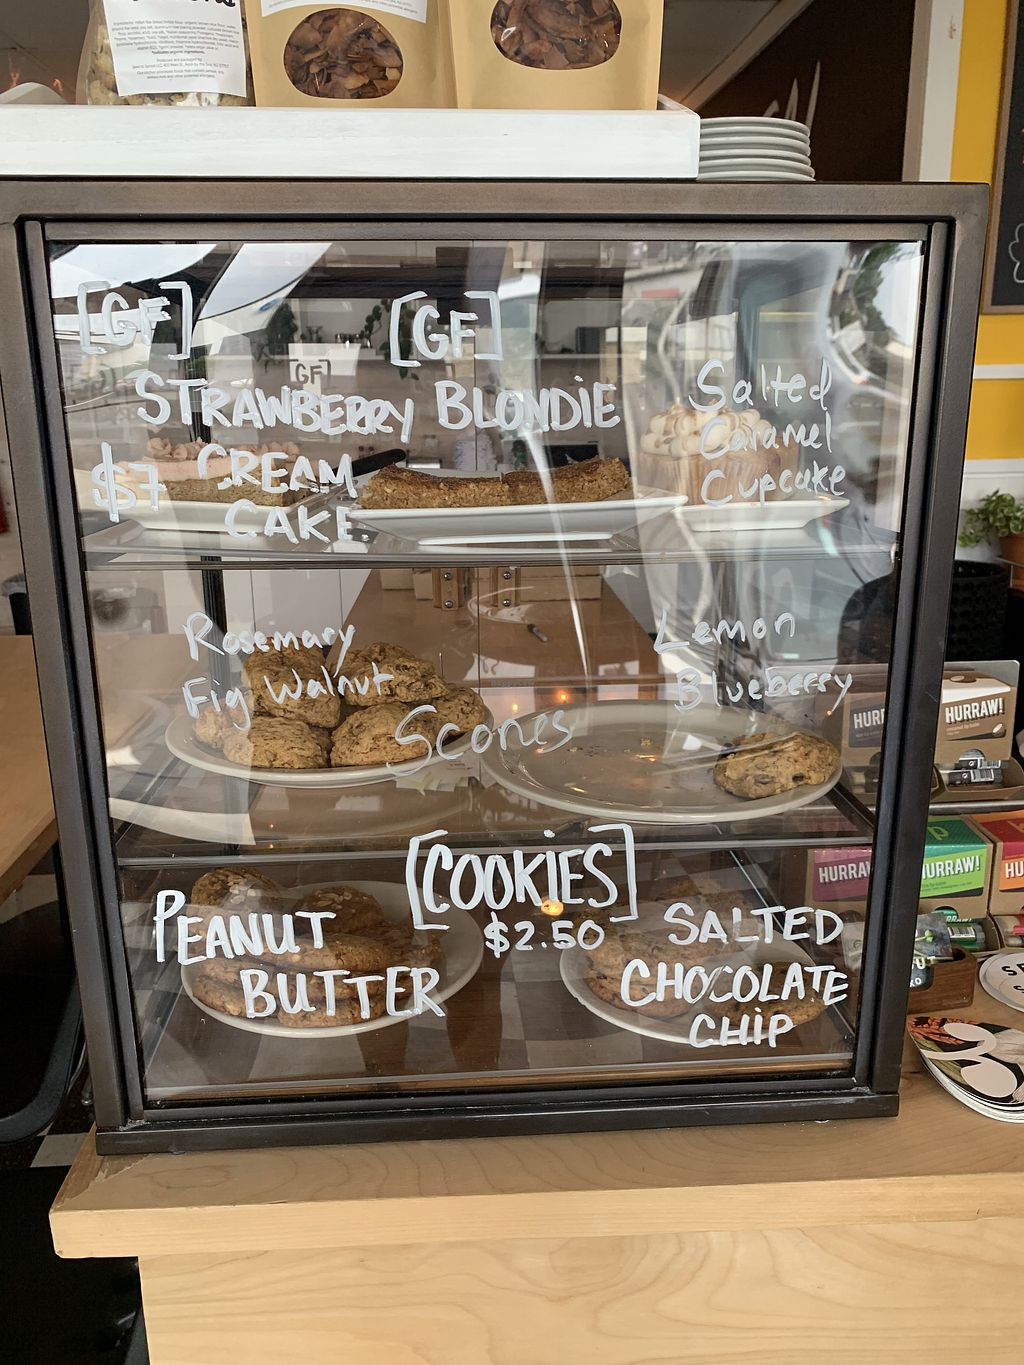 [GF]
[GF]
GF]
STRAWBERRY
CREAM
CAKE
$7
BLONDIE
Salted
Caramel
Cupcake
Rosemary
Fig Walnut
Scones
Lemon
Blueberry
[COOKIES]
$2.50
PEANUT
BUTTER
SALTED
CHOCOLATE
CHIP
HURRAW!
HURRAW!